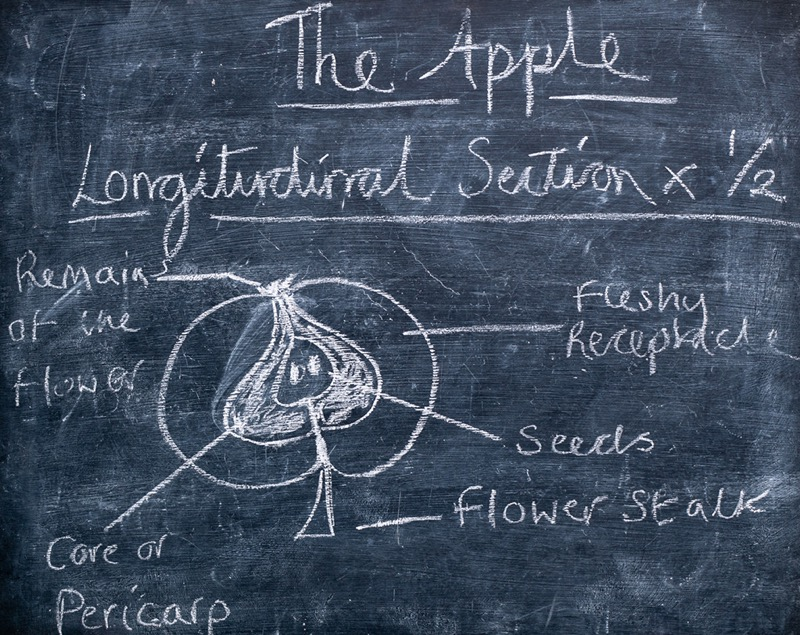 The Apple
Longitudinal Section x 1/2
Remains
of the
flower
Fleshy
Receptacle
Seeds
Flower Stalk
Core or
Pericarp